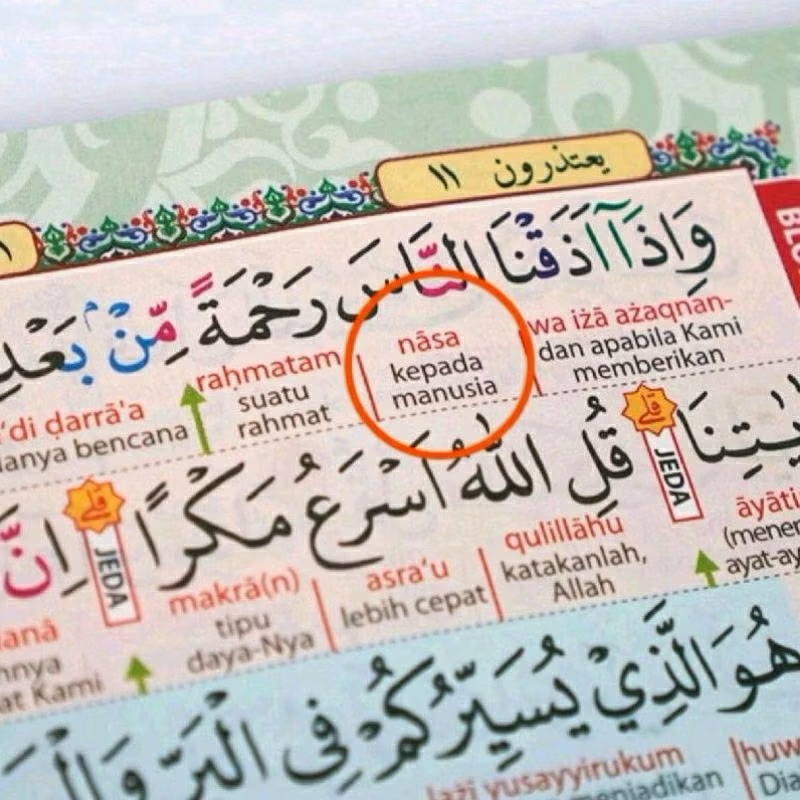 يعتذرون ١١
١
وَاِذَآ اَذَقْنَا النَّاسَ رَحْمَةً مِّنْۢ بَعْدِ
wa iżā ażaqnan- nāsa raḥmatam 'di ḍarrā'a
dan apabila Kami kepada suatu anya bencana
memberikan manusia rahmat
قُلِ اللّٰهُ اَسْرَعُ مَكْرًا اِنَّ
قلى JEDA قلى JEDA
āyāti qulillāhu asra'u makrā(n) anā
(mener katakanlah, lebih cepat tipu hnya
ayat-ay Allah daya-Nya at Kami
هُوَ الَّذِيْ يُسَيِّرُكُمْ فِى الْبَرِّ وَالْ
huw lażī yusayyirukum
Dia menjadikan